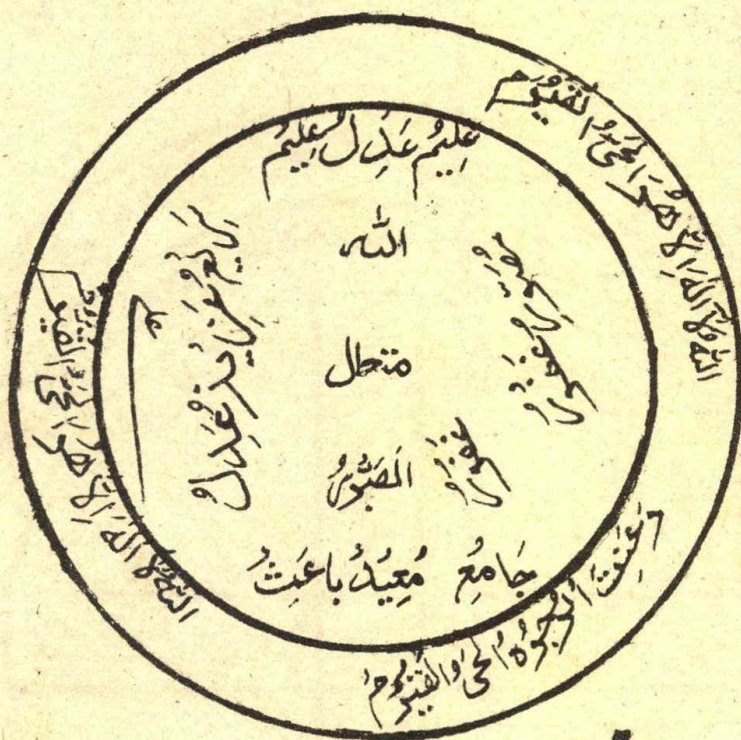 اللهُ لَا اِلٰهَ اِلَّا هُوَ الْحَىُّ الْقَيُّوْم
وَعَنِتَ الْوُجُوْهُ الْحَىُّ وَالْقَيُّوْمُ
اللهُ لَا اِلٰهَ اِلَّا هُوَ الْحَىُّ الْقَيُّوْم
عَلِيْمُ عَدِلُ عَلِيْمُ
الله
عَزِيْزُ عَدِلُ
متعال
الصَّبُوْرُ
جَامِعُ مُعِيْدُ بَاعِثُ